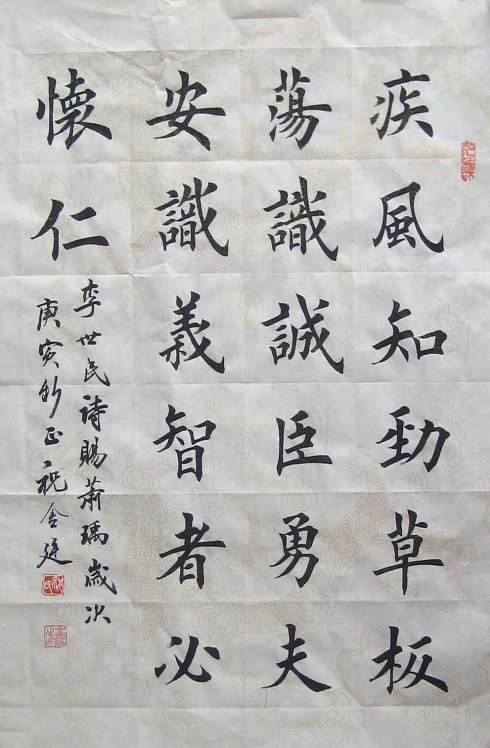 疾風知勁草板
蕩識誠臣勇夫
安識義智者必
懷仁
李世民诗賜蕭瑀歲次
庚寅